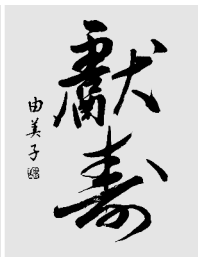 獻寿
由美子